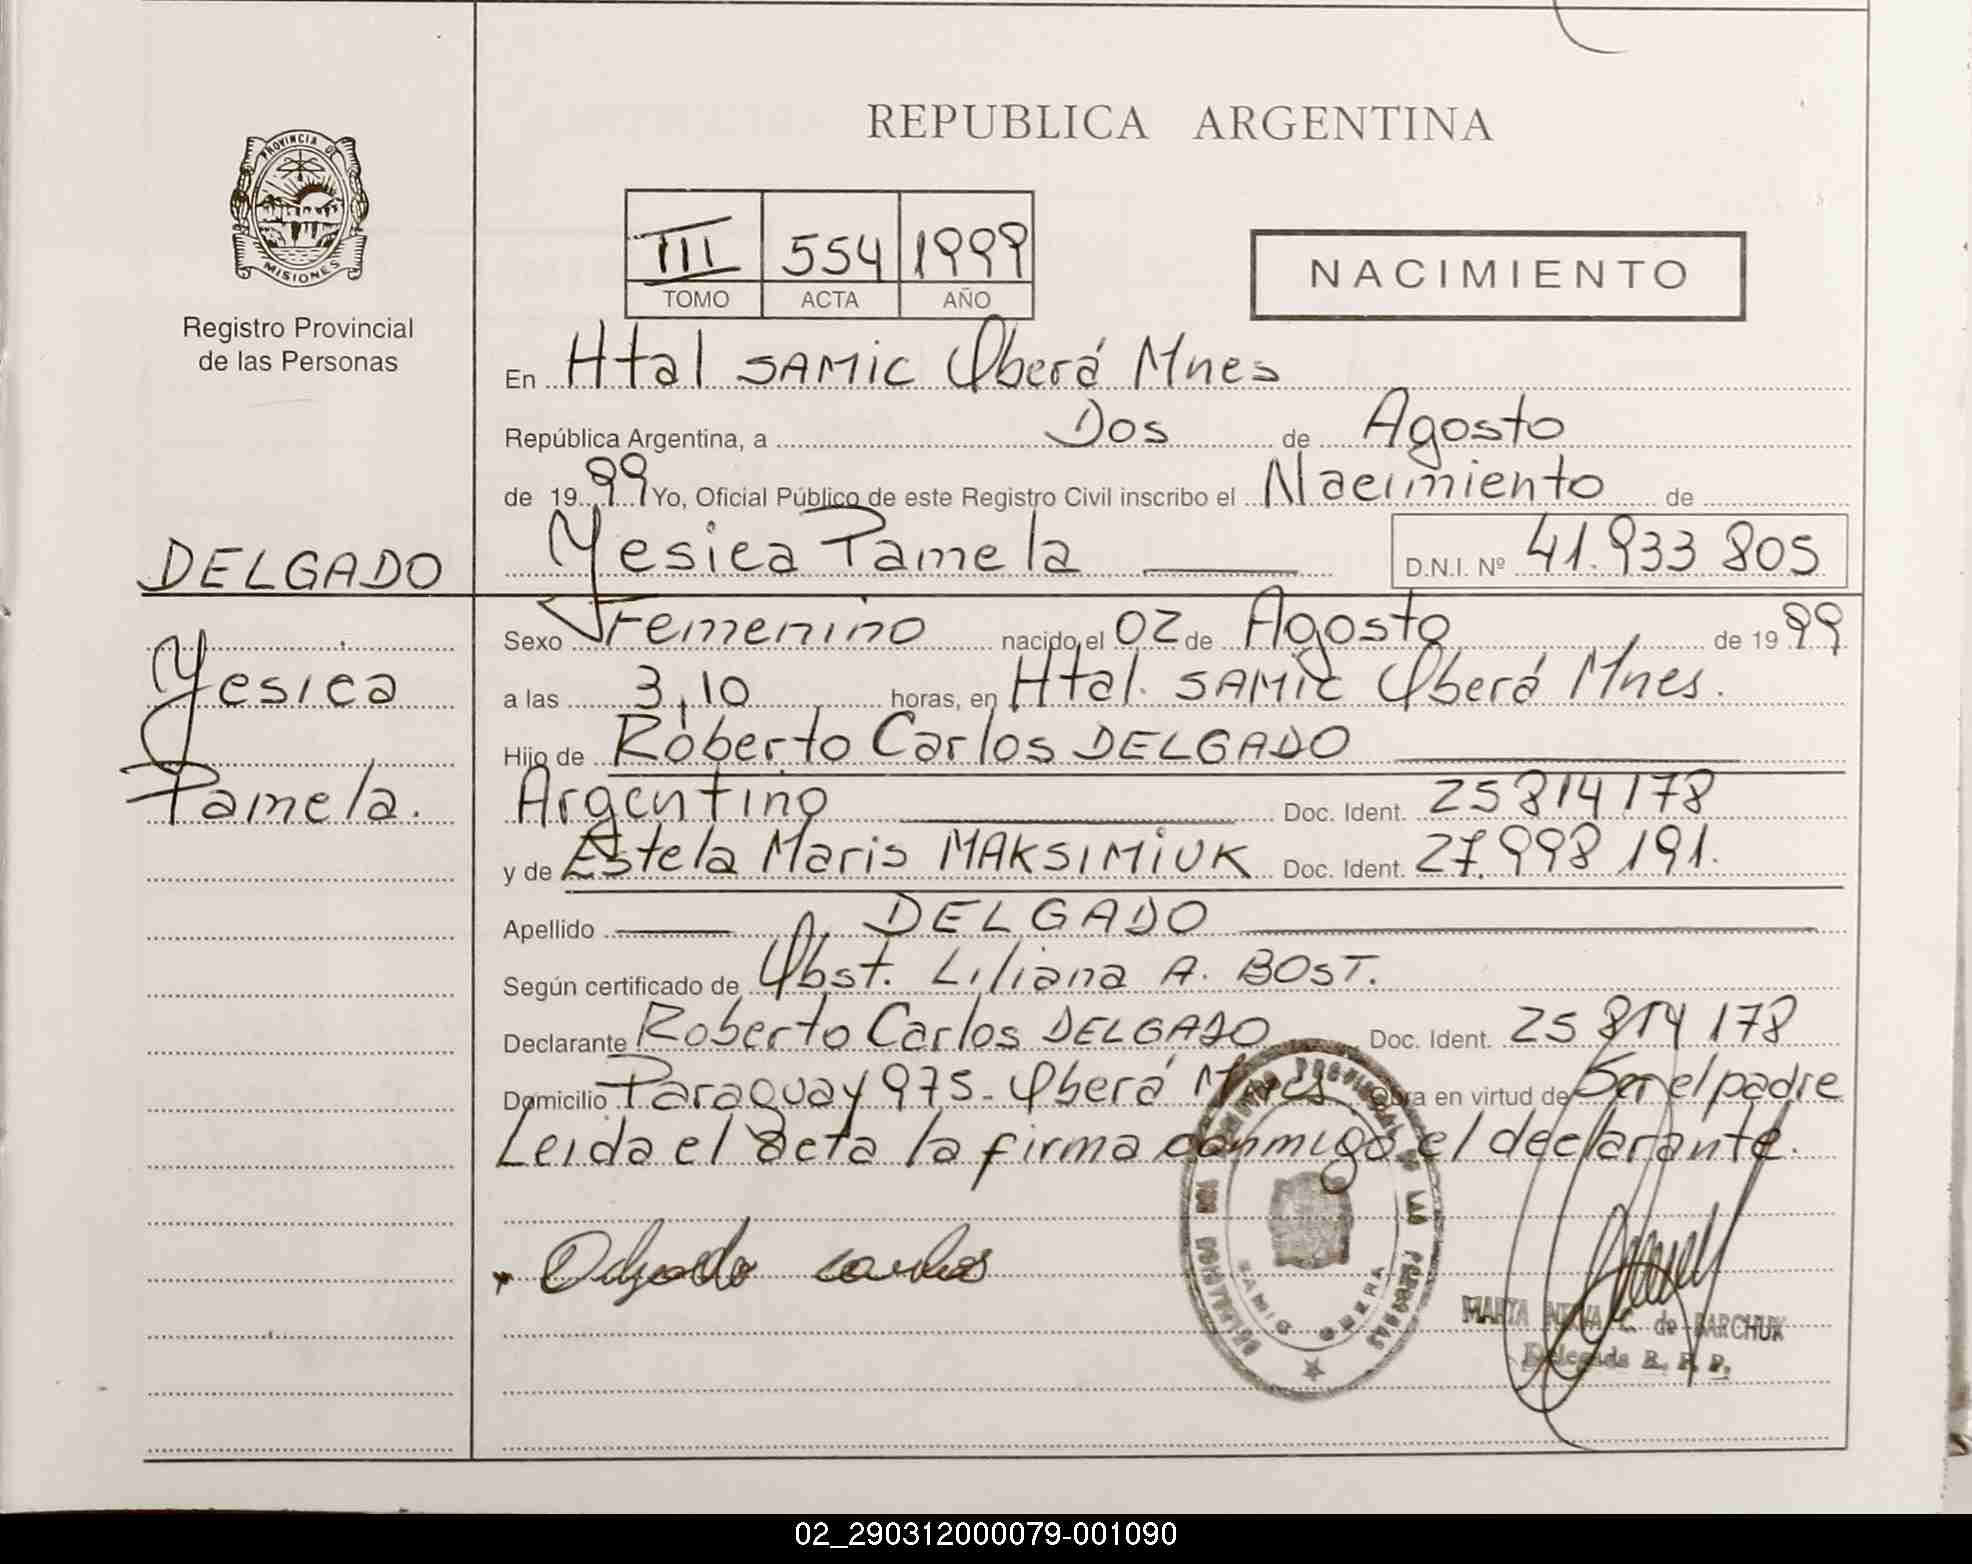 REPUBLICA ARGENTINA
PROVINCIA DE
MISIONES
Registro Provincial
de las Personas
III 554 1999
TOMO ACTA AÑO
NACIMIENTO
En Htal SAMIC Oberá Mnes
República Argentina, a Dos de Agosto
de 1999 Yo, Oficial Público de este Registro Civil inscribo el Nacimiento de
DELGADO
Yesica Pamela
D.N.I. Nº 41.933 805
Yesica
Pamela.
Sexo Femenino nacido el 02 de Agosto de 1999
a las 3,10 horas, en Htal. SAMIC Oberá Mnes.
Hijo de Roberto Carlos DELGADO
Argentino Doc. Ident. 25 814 178
y de Estela Maris MAKSIMIUK Doc. Ident. 27.998 191.
Apellido DELGADO
Según certificado de Obst. Liliana A. BOST.
Declarante Roberto Carlos DELGADO Doc. Ident. 25 814 178
Domicilio Paraguay 975- Oberá Mnes Obra en virtud de Ser el padre
Leida el acta la firma conmigo el declarante.
Delgado carlos
REGISTRO PROVINCIAL DE LAS PERSONAS
SAMIC OBERA
MARTA C. de BARCHUK
Delegada R. P. P.
02_290312000079-001090